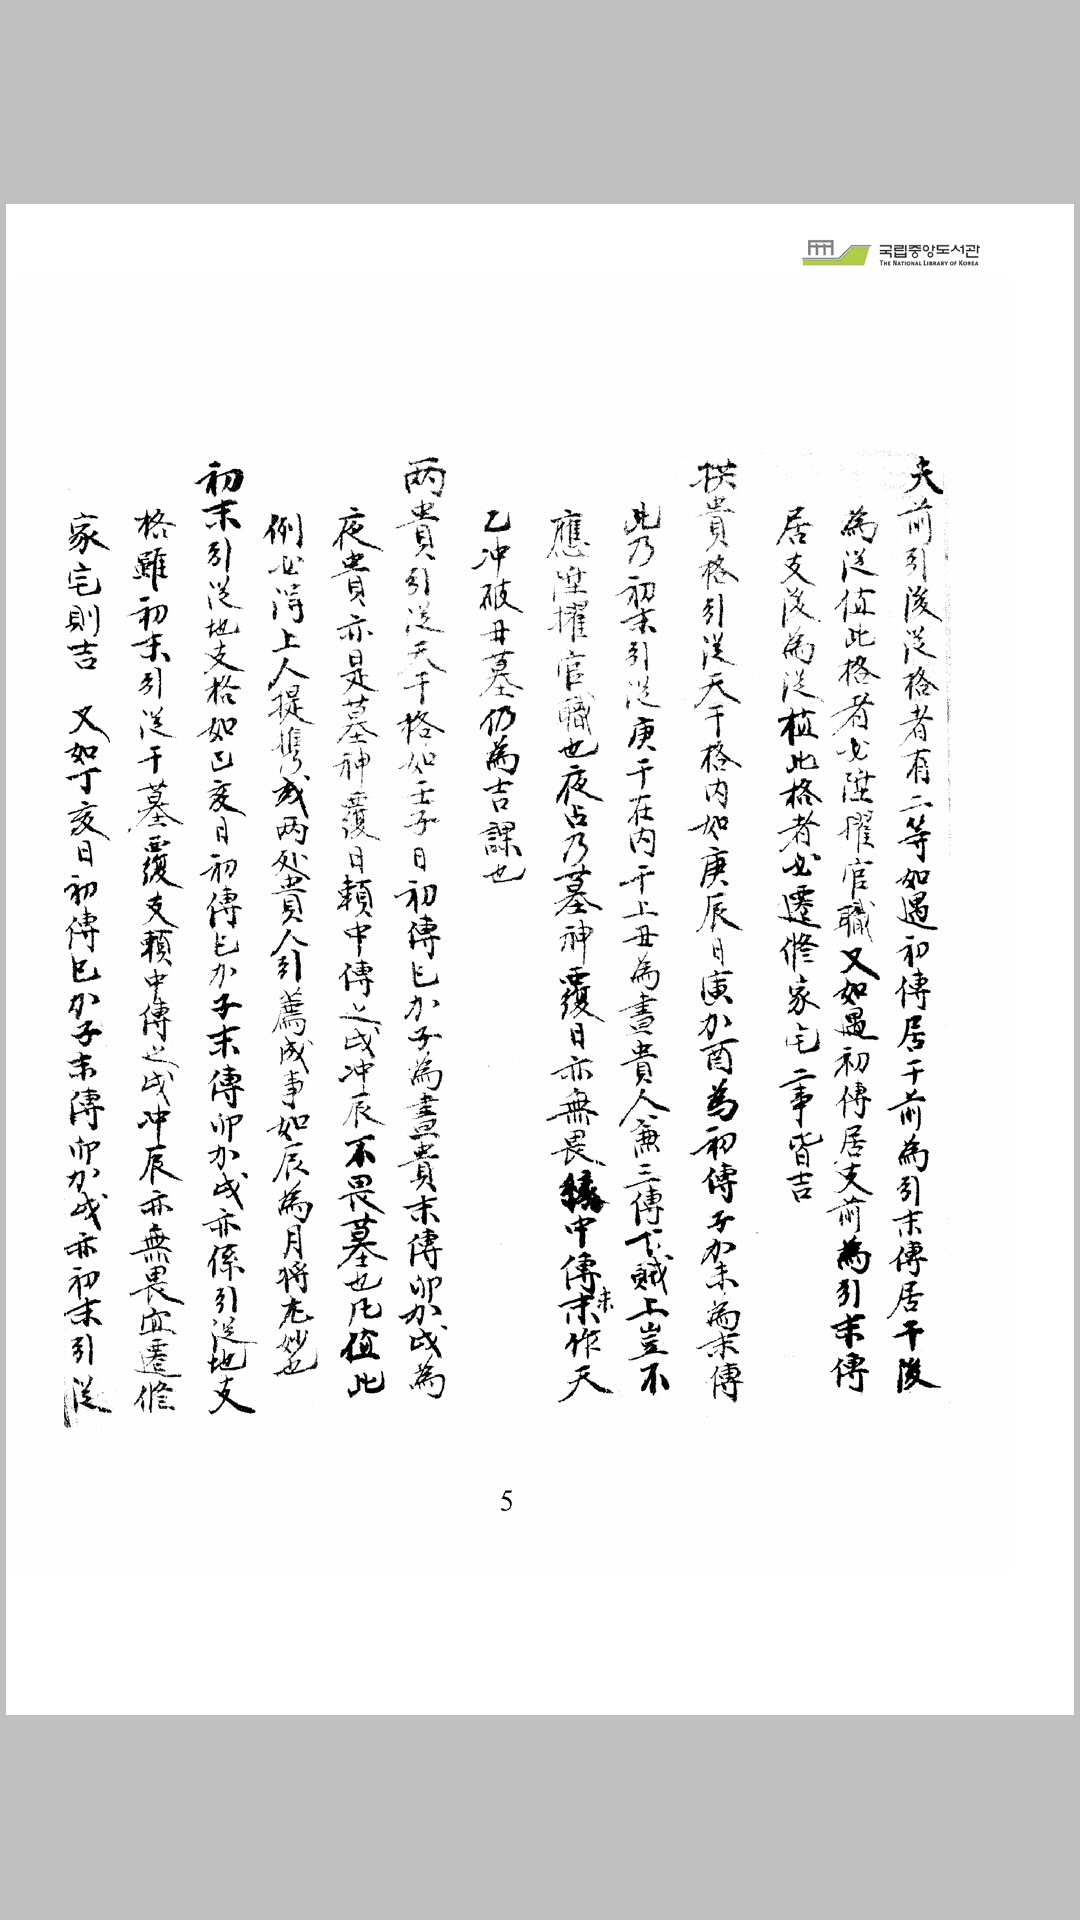 국립중앙도서관
THE NATIONAL LIBRARY OF KOREA
夫前引後從格者有二等如遇初傳居干前為引末傳居干後
為從值此格者必陞擢官職又如遇初傳居支前為引末傳
居支後為從植此格者必遷修家宅二事皆吉
拱貴格引從天干格內如庚辰日寅加酉為初傳子加未為末傳
此乃初末引從庚干在內干上丑為晝貴人兼三傳下賊上豈不
應陞擢官職也夜占乃墓神覆日亦無畏緣中傳末未作天
乙冲破丑墓仍為吉課也
兩貴引從天干格如壬子日初傳巳加子為晝貴末傳卯加戌為
夜貴亦是墓神覆日賴中傳之戌冲辰不畏墓也凡值此
例必得上人提携或兩处貴人引薦成事如辰為月將尤妙也
初末引從地支格如己亥日初傳巳加子末傳卯加戌亦係引從地支
格雖初末引從干墓覆支賴中傳之戌冲辰亦無畏宜遷修
家宅則吉 又如丁亥日初傳巳加子末傳卯加戌亦初末引從
5